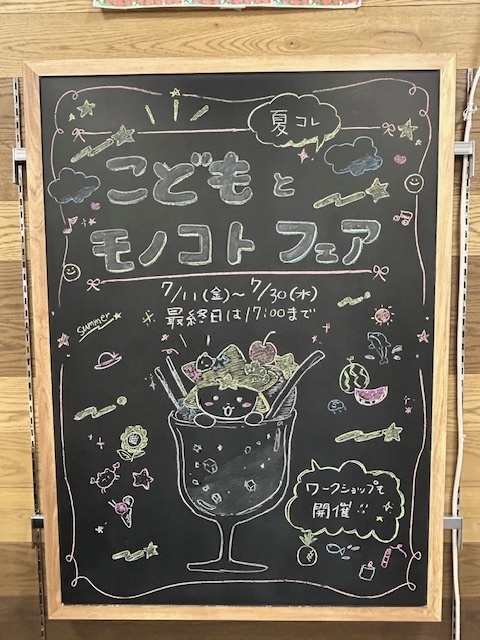 夏コレ
こどもと
モノコト フェア
7/11(金)~7/30(水)
最終日は17:00まで
summer
ワークショップも
開催!!